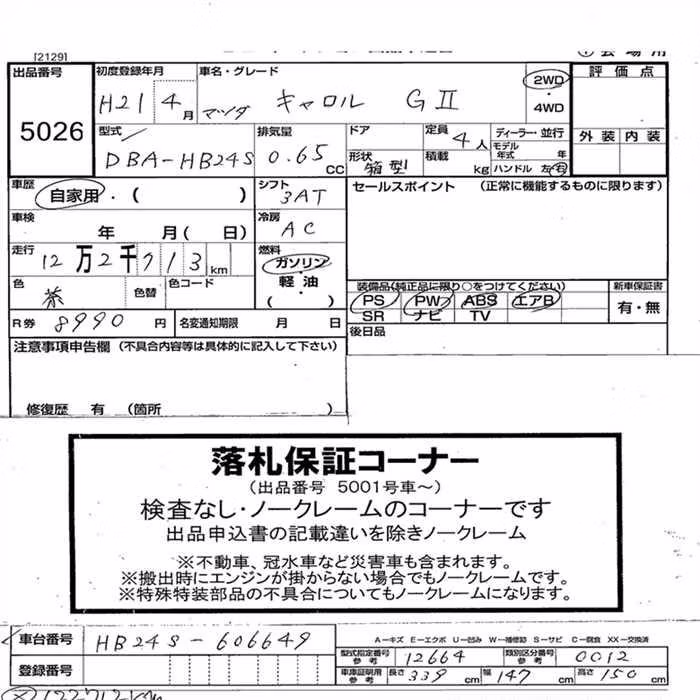 [2129]
会場用
出品番号 初度登録年月 車名・グレード 2WD 評価点
5026 H21 4月 マツダ キャロル GⅡ ・ 4WD
型式 排気量 ドア 定員 4人 ディーラー・並行 外装 内装
DBA-HB24S 0.65 CC 形状 箱型 積載 kg モデル年式 年 ハンドル 左・右
車歴 自家用・( ) シフト 3AT セールスポイント (正常に機能するものに限ります)
車検 年 月( 日) 冷房 AC
走行 12万2千713km 燃料 ガソリン・軽油・( )
色 茶 色替 色コード 装備品(純正品に限り○をつけてください) 新車保証書
PS PW ABS エアB 有・無
SR ナビ TV
R券 8990円 名変通知期限 月 日 後日品
注意事項申告欄 (不具合内容等は具体的に記入して下さい)
修復歴 有 (箇所 )
落札保証コーナー
(出品番号 5001号車~)
検査なし・ノークレームのコーナーです
出品申込書の記載違いを除きノークレーム
※不動車、冠水車など災害車も含まれます。
※搬出時にエンジンが掛からない場合でもノークレームです。
※特殊特装部品の不具合についてもノークレームになります。
車台番号 HB24S-606649 A-キズ E-エクボ U-凹み W-補修跡 S-サビ C-腐食 XX-交換済
型式指定番号 参考 12664 類別区分番号 参考 0012
登録番号 車庫証明用 参考 長さ 339cm 幅 147cm 高さ 150cm
122712km